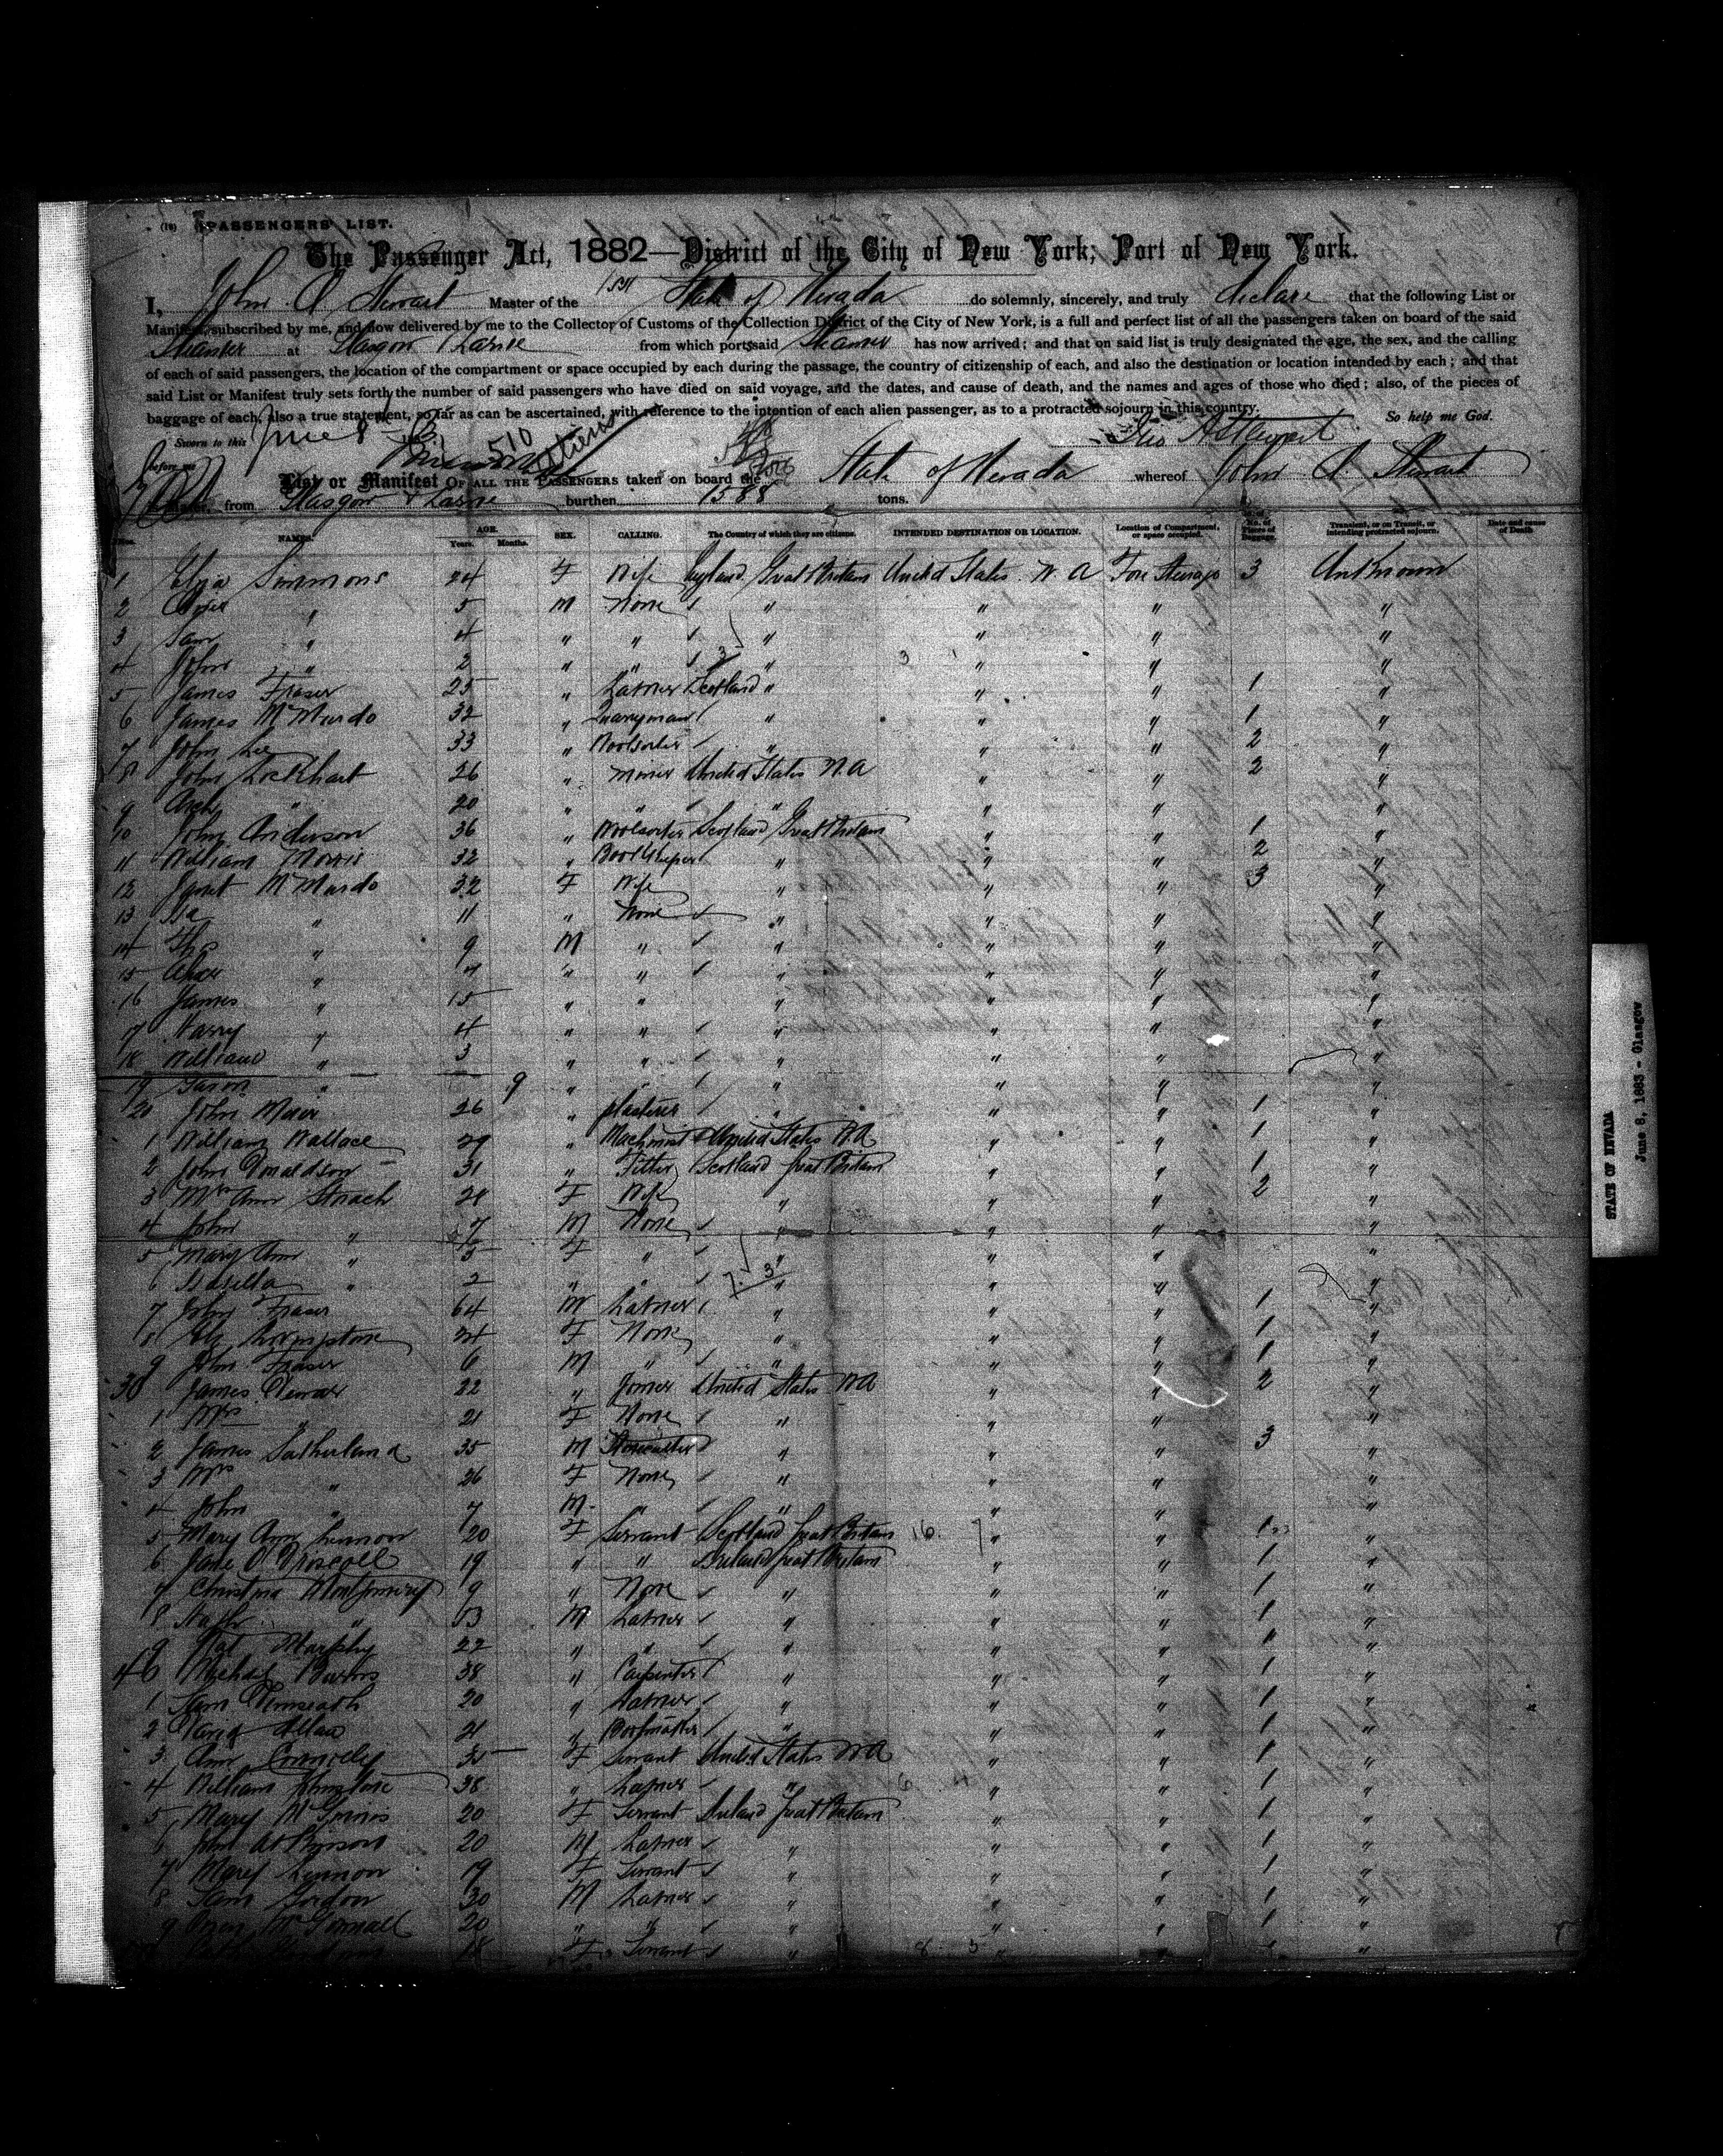 (10) PASSENGERS' LIST.
The Passenger Act, 1882—District of the City of New York, Port of New York.
I, John A Stewart Master of the SS State of Nevada do solemnly, sincerely, and truly declare that the following List or
Manifest, subscribed by me, and now delivered by me to the Collector of Customs of the Collection District of the City of New York, is a full and perfect list of all the passengers taken on board of the said
Steamer at Glasgow & Larne from which port said Steamer has now arrived; and that on said list is truly designated the age, the sex, and the calling
of each of said passengers, the location of the compartment or space occupied by each during the passage, the country of citizenship of each, and also the destination or location intended by each; and that
said List or Manifest truly sets forth the number of said passengers who have died on said voyage, and the dates, and cause of death, and the names and ages of those who died; also, of the pieces of
baggage of each, also a true statement, so far as can be ascertained, with reference to the intention of each alien passenger, as to a protracted sojourn in this country. So help me God.
Sworn to this June 8th 510 Jno A Stewart
before me
List or Manifest OF ALL THE PASSENGERS taken on board the State of Nevada whereof John A. Stewart
from Glasgow & Larne burthen 1588 tons.
NAMES. AGE. Years. Months. SEX. CALLING. The Country of which they are citizens. INTENDED DESTINATION OR LOCATION. Location of Compartment, or space occupied. No. of Pieces of Baggage. Transient, or on Transit, or intending protracted sojourn. Date and cause of Death
1 Eliza Simmons 24 F Wife England Great Britain United States N. A Fore Steerage 3 Unknown
2 " 5 M None " " " "
3 Sam " 4 " " " " " "
4 John " 2 " " " " " "
5 James Fraser 25 " Labourer Scotland " " " 1 "
6 James McMurdo 32 " Quarryman " " " 1 "
7 John Lee 33 " Woolsorter " " " 2 "
8 John Lockhart 26 " Miner United States N.A " " 2 "
9 Arch " 20 " " " " " "
10 John Anderson 36 " Woolsorter Scotland Great Britain " " 1 "
11 William Morris 32 " Bookkeeper " " " 2 "
12 Janet McMurdo 32 F Wife " " " 3 "
13 Isa " 11 " None " " " "
14 Thos " 9 M " " " " "
15 Alexr " 7 " " " " " "
16 James " 15 " " " " " "
17 Harry " 4 " " " " " "
18 William " 3 " " " " " "
19 " 9 " " " " " "
20 John Muir 26 " plasterer " " " 1 "
1 William Wallace 29 " Machinist United States N.A " " 1 "
2 John Donaldson 31 " Fitter Scotland Great Britain " " 1 "
3 Mrs Ann Strach 28 F Wife " " " 2 "
4 John " 7 M None " " " "
5 Mary Ann " 5 F " " " " "
6 Isabella " 2 " " " " " "
7 John Fraser 64 M Labourer " " " 1 "
8 Livingstone 24 F None " " " 1 "
9 John Fraser 6 M " " " " 1 "
30 James Dewar 22 " Joiner United States NA " " 2 "
1 Mrs " 21 F None " " " "
2 James Sutherland 35 M Stonecutter " " " 3 "
3 Mrs " 26 F None " " " "
4 John " 7 M " " " " "
5 Mary Ann Lennon 20 F Servant Scotland Great Britain " " 1 "
6 Jane O Driscoll 19 " " Ireland Great Britain " " 1 "
7 Christina Montgomery 9 " None " " " 1 "
8 " 53 M Labourer " " " 1 "
9 Pat Murphy 22 " " " " " 1 "
40 Michael 38 " Carpenter " " " 1 "
1 Sam 20 " Labourer " " " 1 "
2 David Allan 21 " Bootmaker " " " 1 "
3 Ann Connolly F Servant United States NA " " 1 "
4 William Johnstone 38 " Labourer " " " 1 "
5 Mary McGinnis 20 F Servant Ireland Great Britain " " 1 "
6 John Atkinson 20 M Labourer " " " 1 "
7 Mary Lennon 19 F Servant " " " 1 "
8 Sam Gordon 30 M Labourer " " " 1 "
9 Owen 20 " " " " " 1 "
18 F Servant " " " "
STATE OF NEVADA
June 8, 1883 - Glasgow